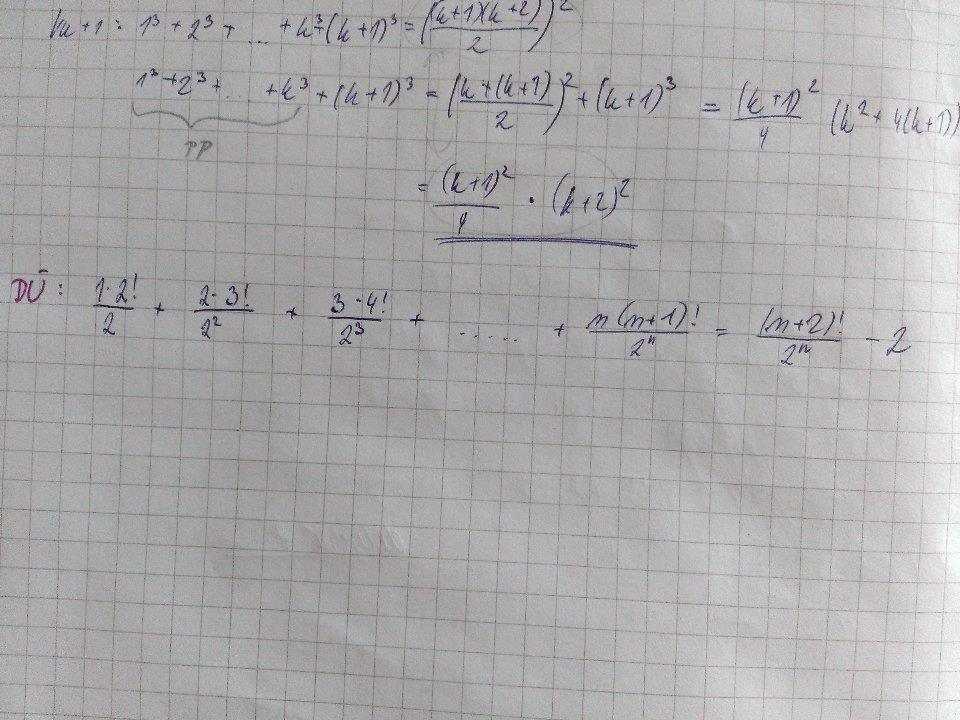 k+1: 1³ + 2³ + ... + k³ + (k+1)³ = ((k+1)(k+2)/2)²
1³ + 2³ + ... + k³ + (k+1)³ = (k+(k+1)/2)² + (k+1)³ = (k+1)²/4 (k² + 4(k+1))
PP
= (k+1)²/4 · (k+2)²
DÚ: 1·2!/2 + 2·3!/2² + 3·4!/2³ + ..... + n(n+1)!/2ⁿ = (n+2)!/2ⁿ - 2